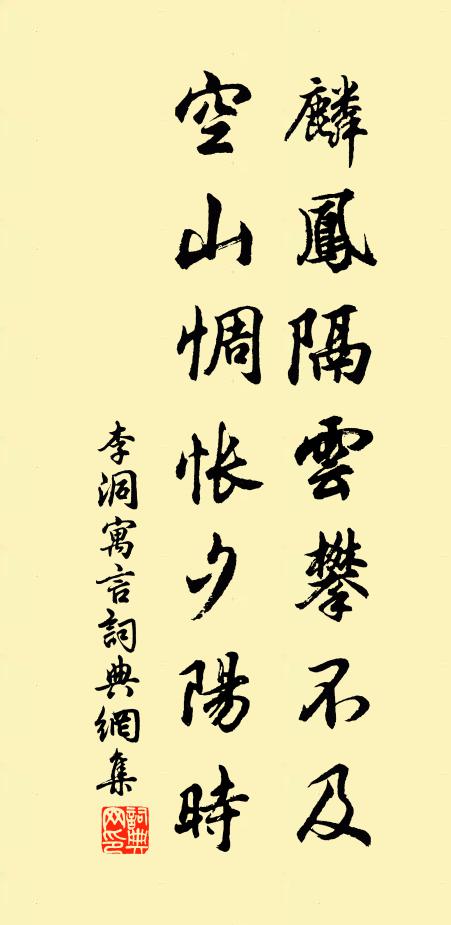 麟鳳隔雲攀不及
空山惆悵夕陽時
李洞寓言詞典網集
詞典網印